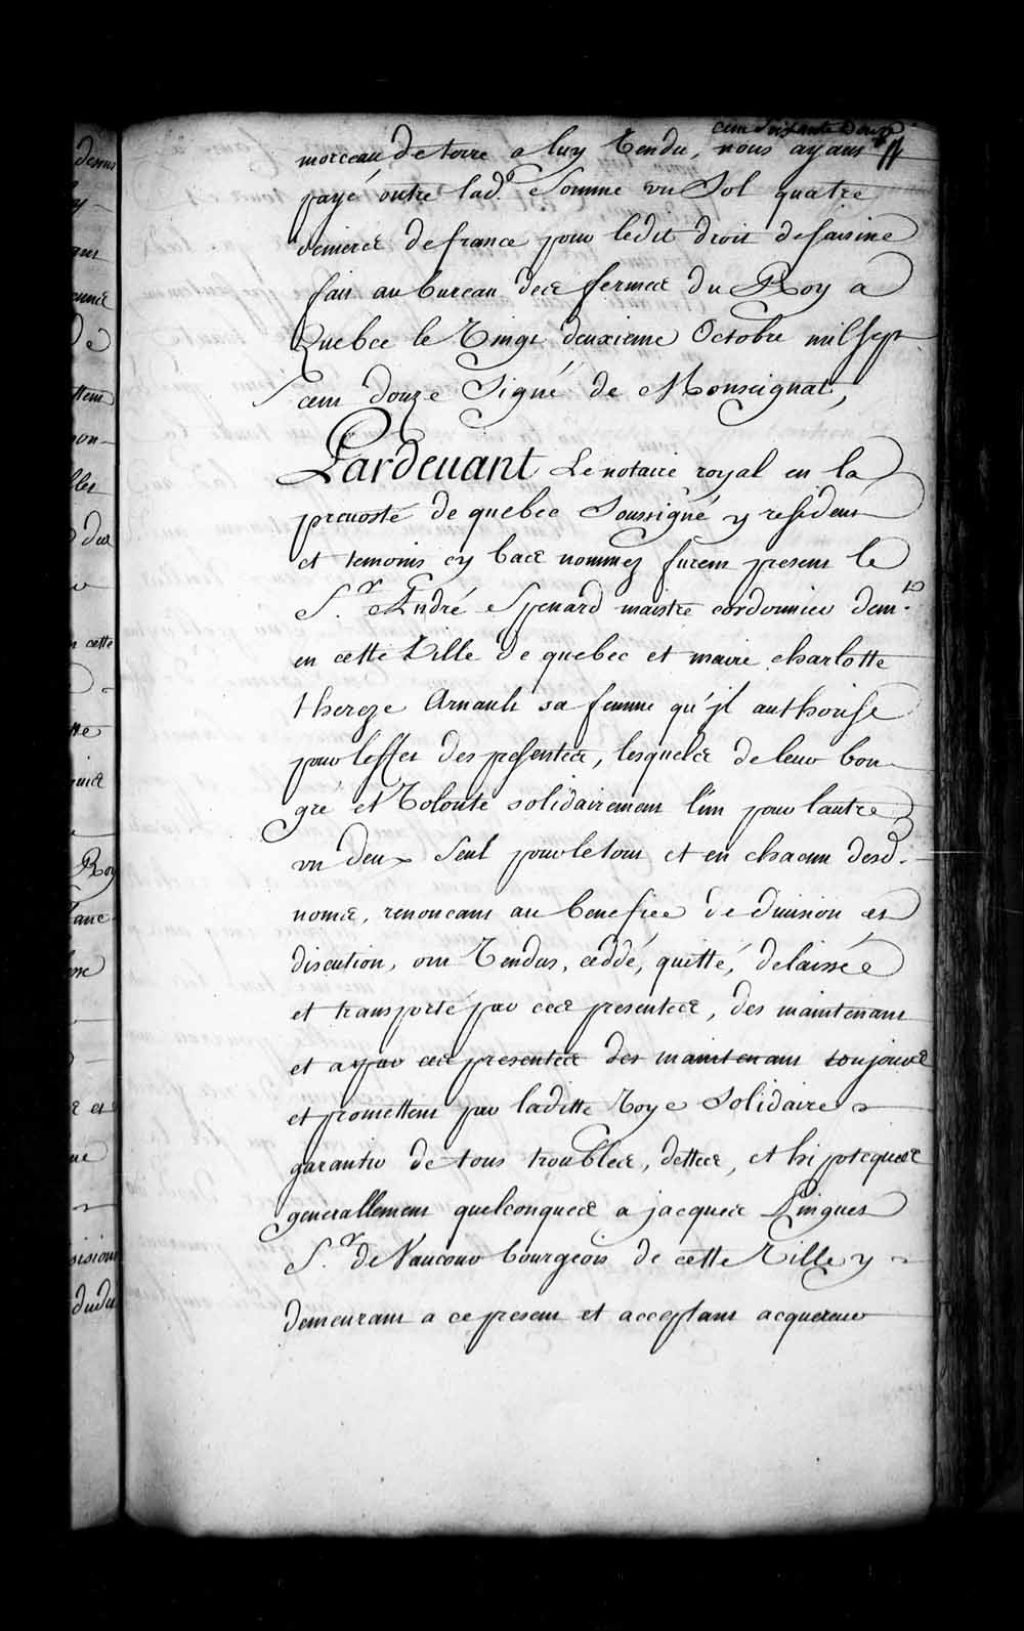 cent soixante douze
morceau de terre a luy Vendu, nous ayant
payé outre lad.e Somme un Sol quatre
deniers de france pour ledit droit de saisine
fait au bureau des fermes du Roy a
Quebec le Vingt deuxieme Octobre mil sept
cent douze Signé de Monseignat,
Pardeuant Le notaire royal en la
preuosté de quebec Soussigné y residant
et temoins cy bas nommez furent presens le
S.r André Spenard maistre cordonnier dem.t
en cette Ville de quebec et marie charlotte
thereze Arnault sa femme qu'jl authorise
pour leffet des presentes, lesquels de leur bon
gré et Volonté solidairement l'un pour lautre
un deux Seul pour le tout et en chacun desd.
noms, renoncans au benefice de diuision et
discution, ont Vendus, ceddé, quitté, delaissé
et transporté par ces presentes, des maintenant
et a par ces presentes des maintenant toujours
et promettent par laditte Voye Solidaire
garantir de tous troubles, dettes, et hipoteques
generallement quelconques a jacques Pingues
S.r de Vaucour bourgeois de cette Ville y
demeurant a ce present et acceptant acquereur
dessus
De
n cette
Roy
dudu